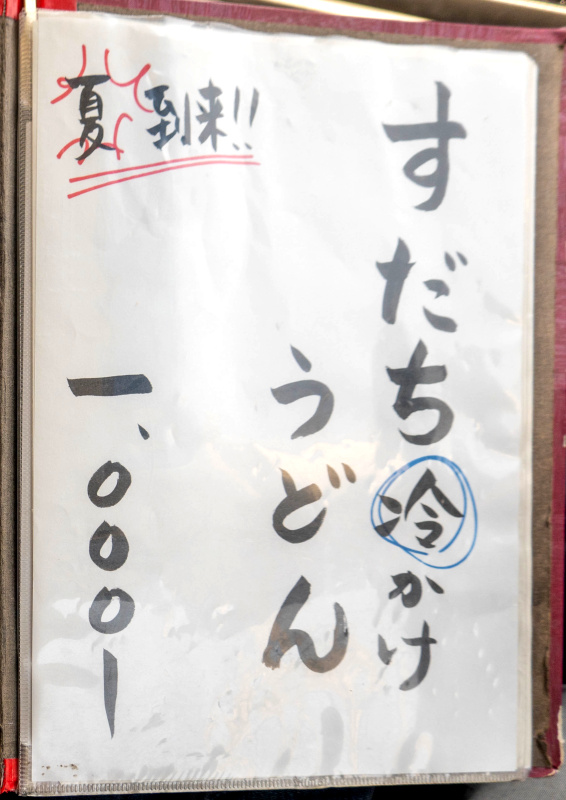 すだち冷かけ
うどん
夏到来!!
一、〇〇〇ー